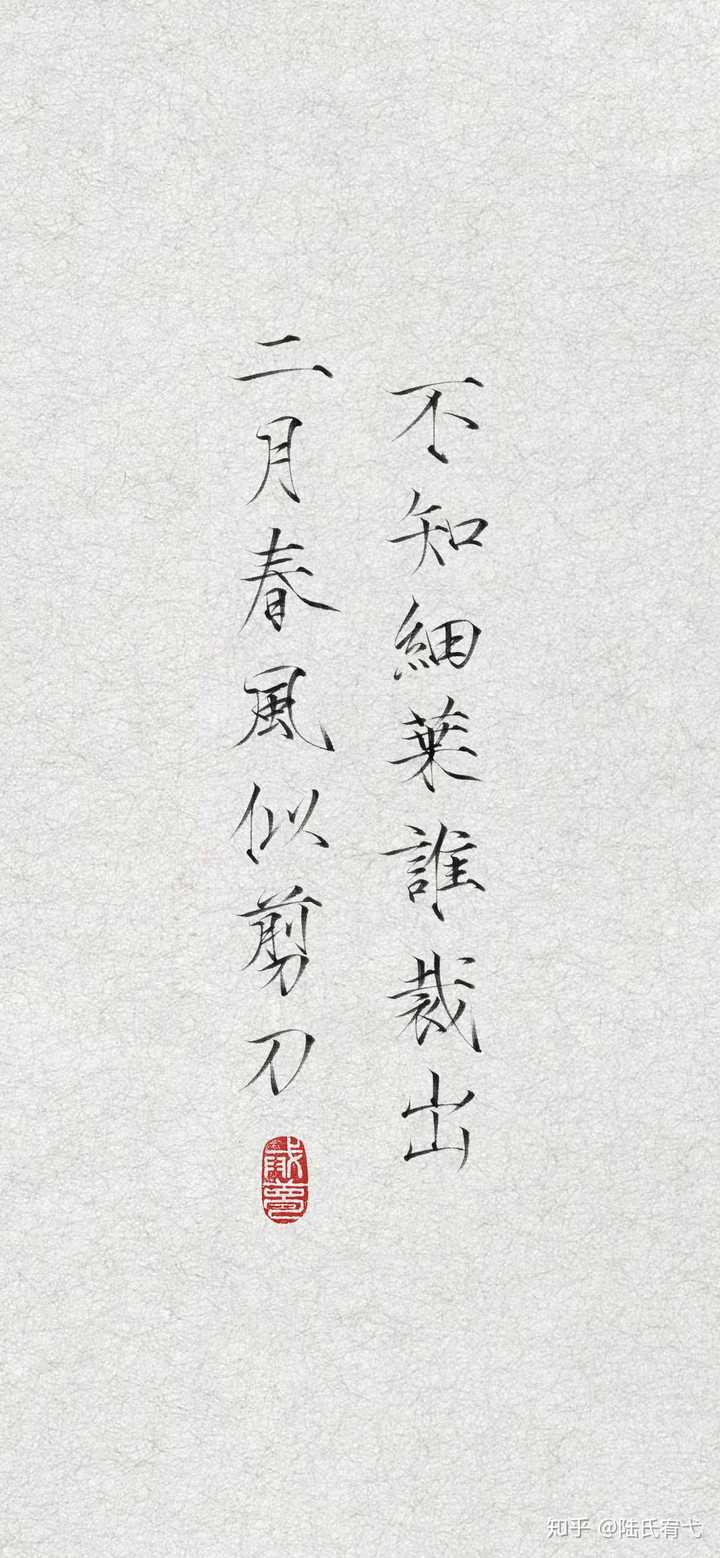 不知細葉誰裁出
二月春風似剪刀
知乎 @陆氏宥弋